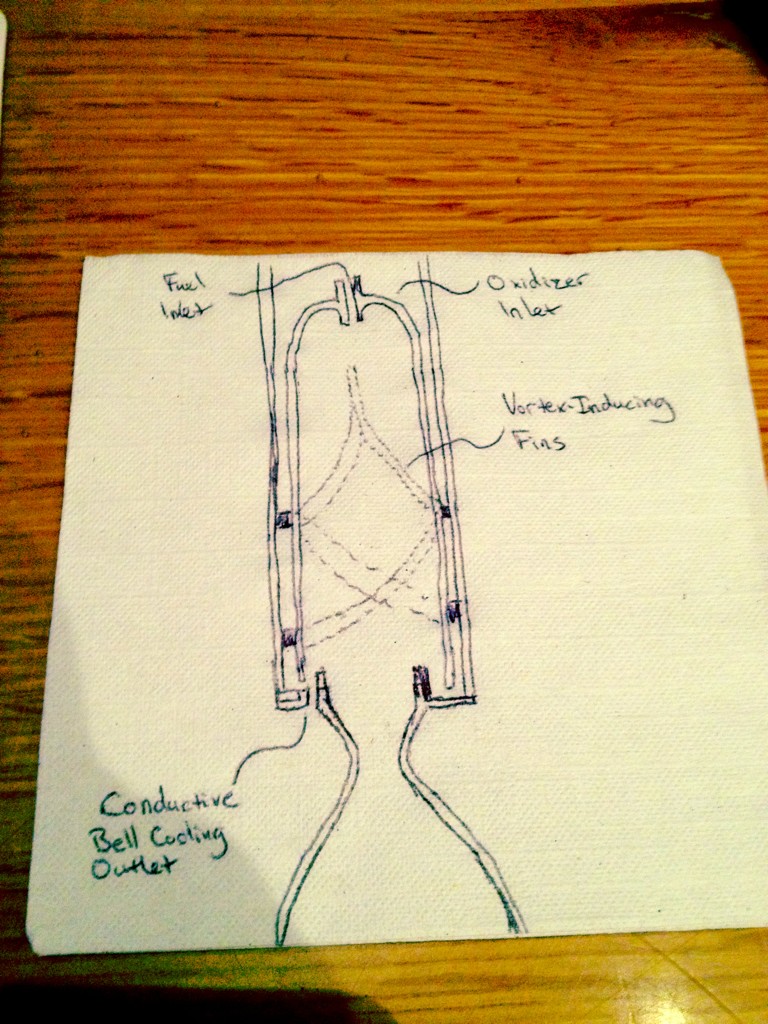 Fuel
Inlet
Oxidizer
Inlet
Vortex-Inducing
Fins
Conductive
Bell Cooling
Outlet